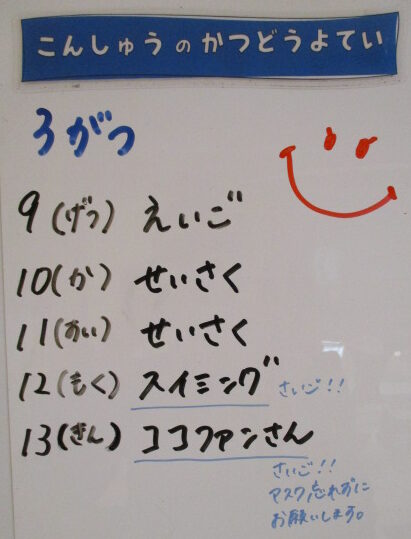 こんしゅうのかつどうよてい
3がつ
9(げつ) えいご
10(か) せいさく
11(すい) せいさく
12(もく) スイミング さいご!!
13(きん) ココファンさん
さいご!!
マスク忘れずに
お願いします。